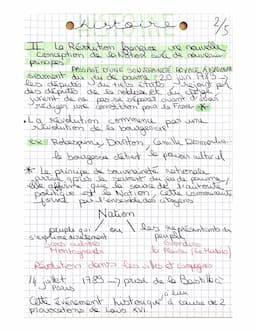 histoire 2/5
II. La Révolution française une nouvelle
conception de la Nation avec de nouveaux
principes
PASSAGE D'UNE SOUVERAINETÉ ROYALE À
serment du jeu de paume (20 juin 1789) →
les députés du tiers états rejoint par
des députés de la noblesse et du clergé
jurent de ne pas se séparer avant d'avoir
rédiger une constitution pour la France *
. La révolution commence par une
révolution de la bourgeoisie
ex: Robespierre, Danton, Camille Desmoulin
la bourgeoisie détient le pouvoir culturel
* Le principe de souveraineté nationale
après le serment du jeu de paume,
elle affirme que la source de l'autorité
politique est la Nation, cette communauté
formé par l'ensemble des citoyens
Nation
peuple qui ou les représentants du
s'exprime directement peuple
Montagnards
Révolution dans les villes et campagnes
14 juillet 1789 → prise de la Bastille
Paris à lieu
Cette événement historique à cause de 2
provocations de Louis XVI